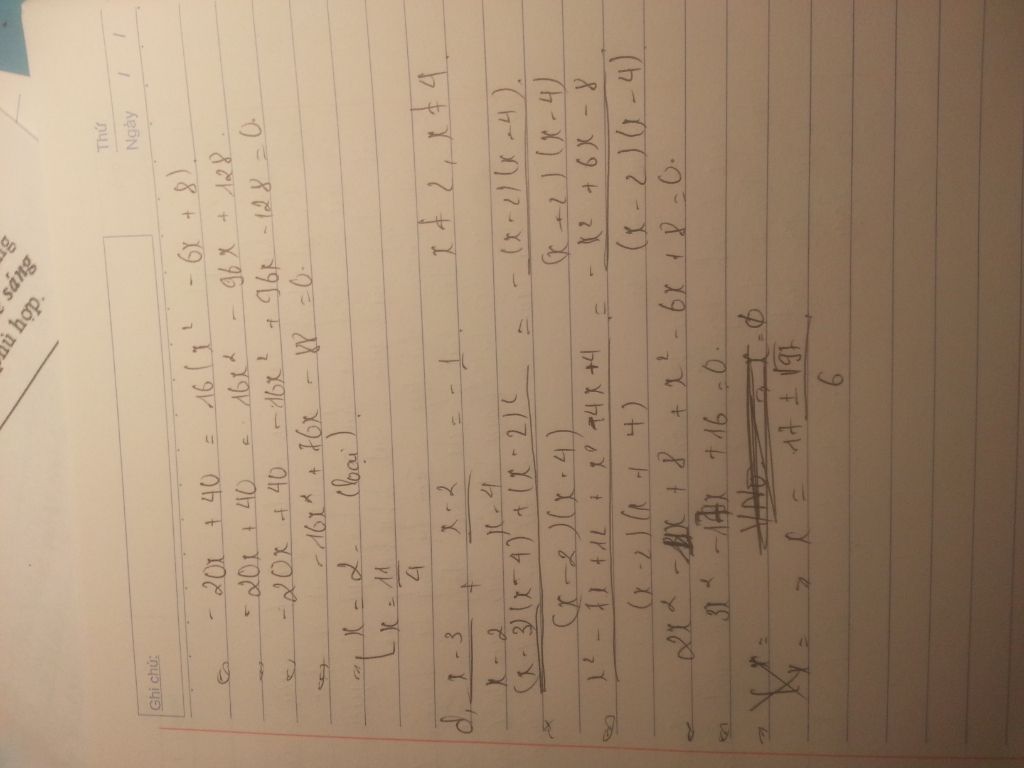 ng
sáng
phù hợp.
Thứ
Ngày / /
Ghi chú:
⇔ -20x + 40 = 16(x² - 6x + 8)
⇔ -20x + 40 = 16x² - 96x + 128
⇔ -20x + 40 - 16x² + 96x - 128 = 0.
⇔ -16x² + 76x - 88 = 0.
⇔ [ x = 2 (loại)
x = 11/4
d, (x - 3)/(x - 2) + (x - 2)/(x - 4) = -1 x ≠ 2, x ≠ 4
⇔ ((x - 3)(x - 4) + (x - 2)²)/((x - 2)(x + 4)) = -((x - 2)(x - 4))/((x + 2)(x - 4))
⇔ (x² - 7x + 12 + x² - 4x + 4)/((x - 2)(x + 4)) = (-x² + 6x - 8)/((x - 2)(x - 4))
⇔ 2x² - 11x + 8 + x² - 6x + 8 = 0.
⇔ 3x² - 17x + 16 = 0.
⇒ x =
⇒ x = (17 ± √97)/6